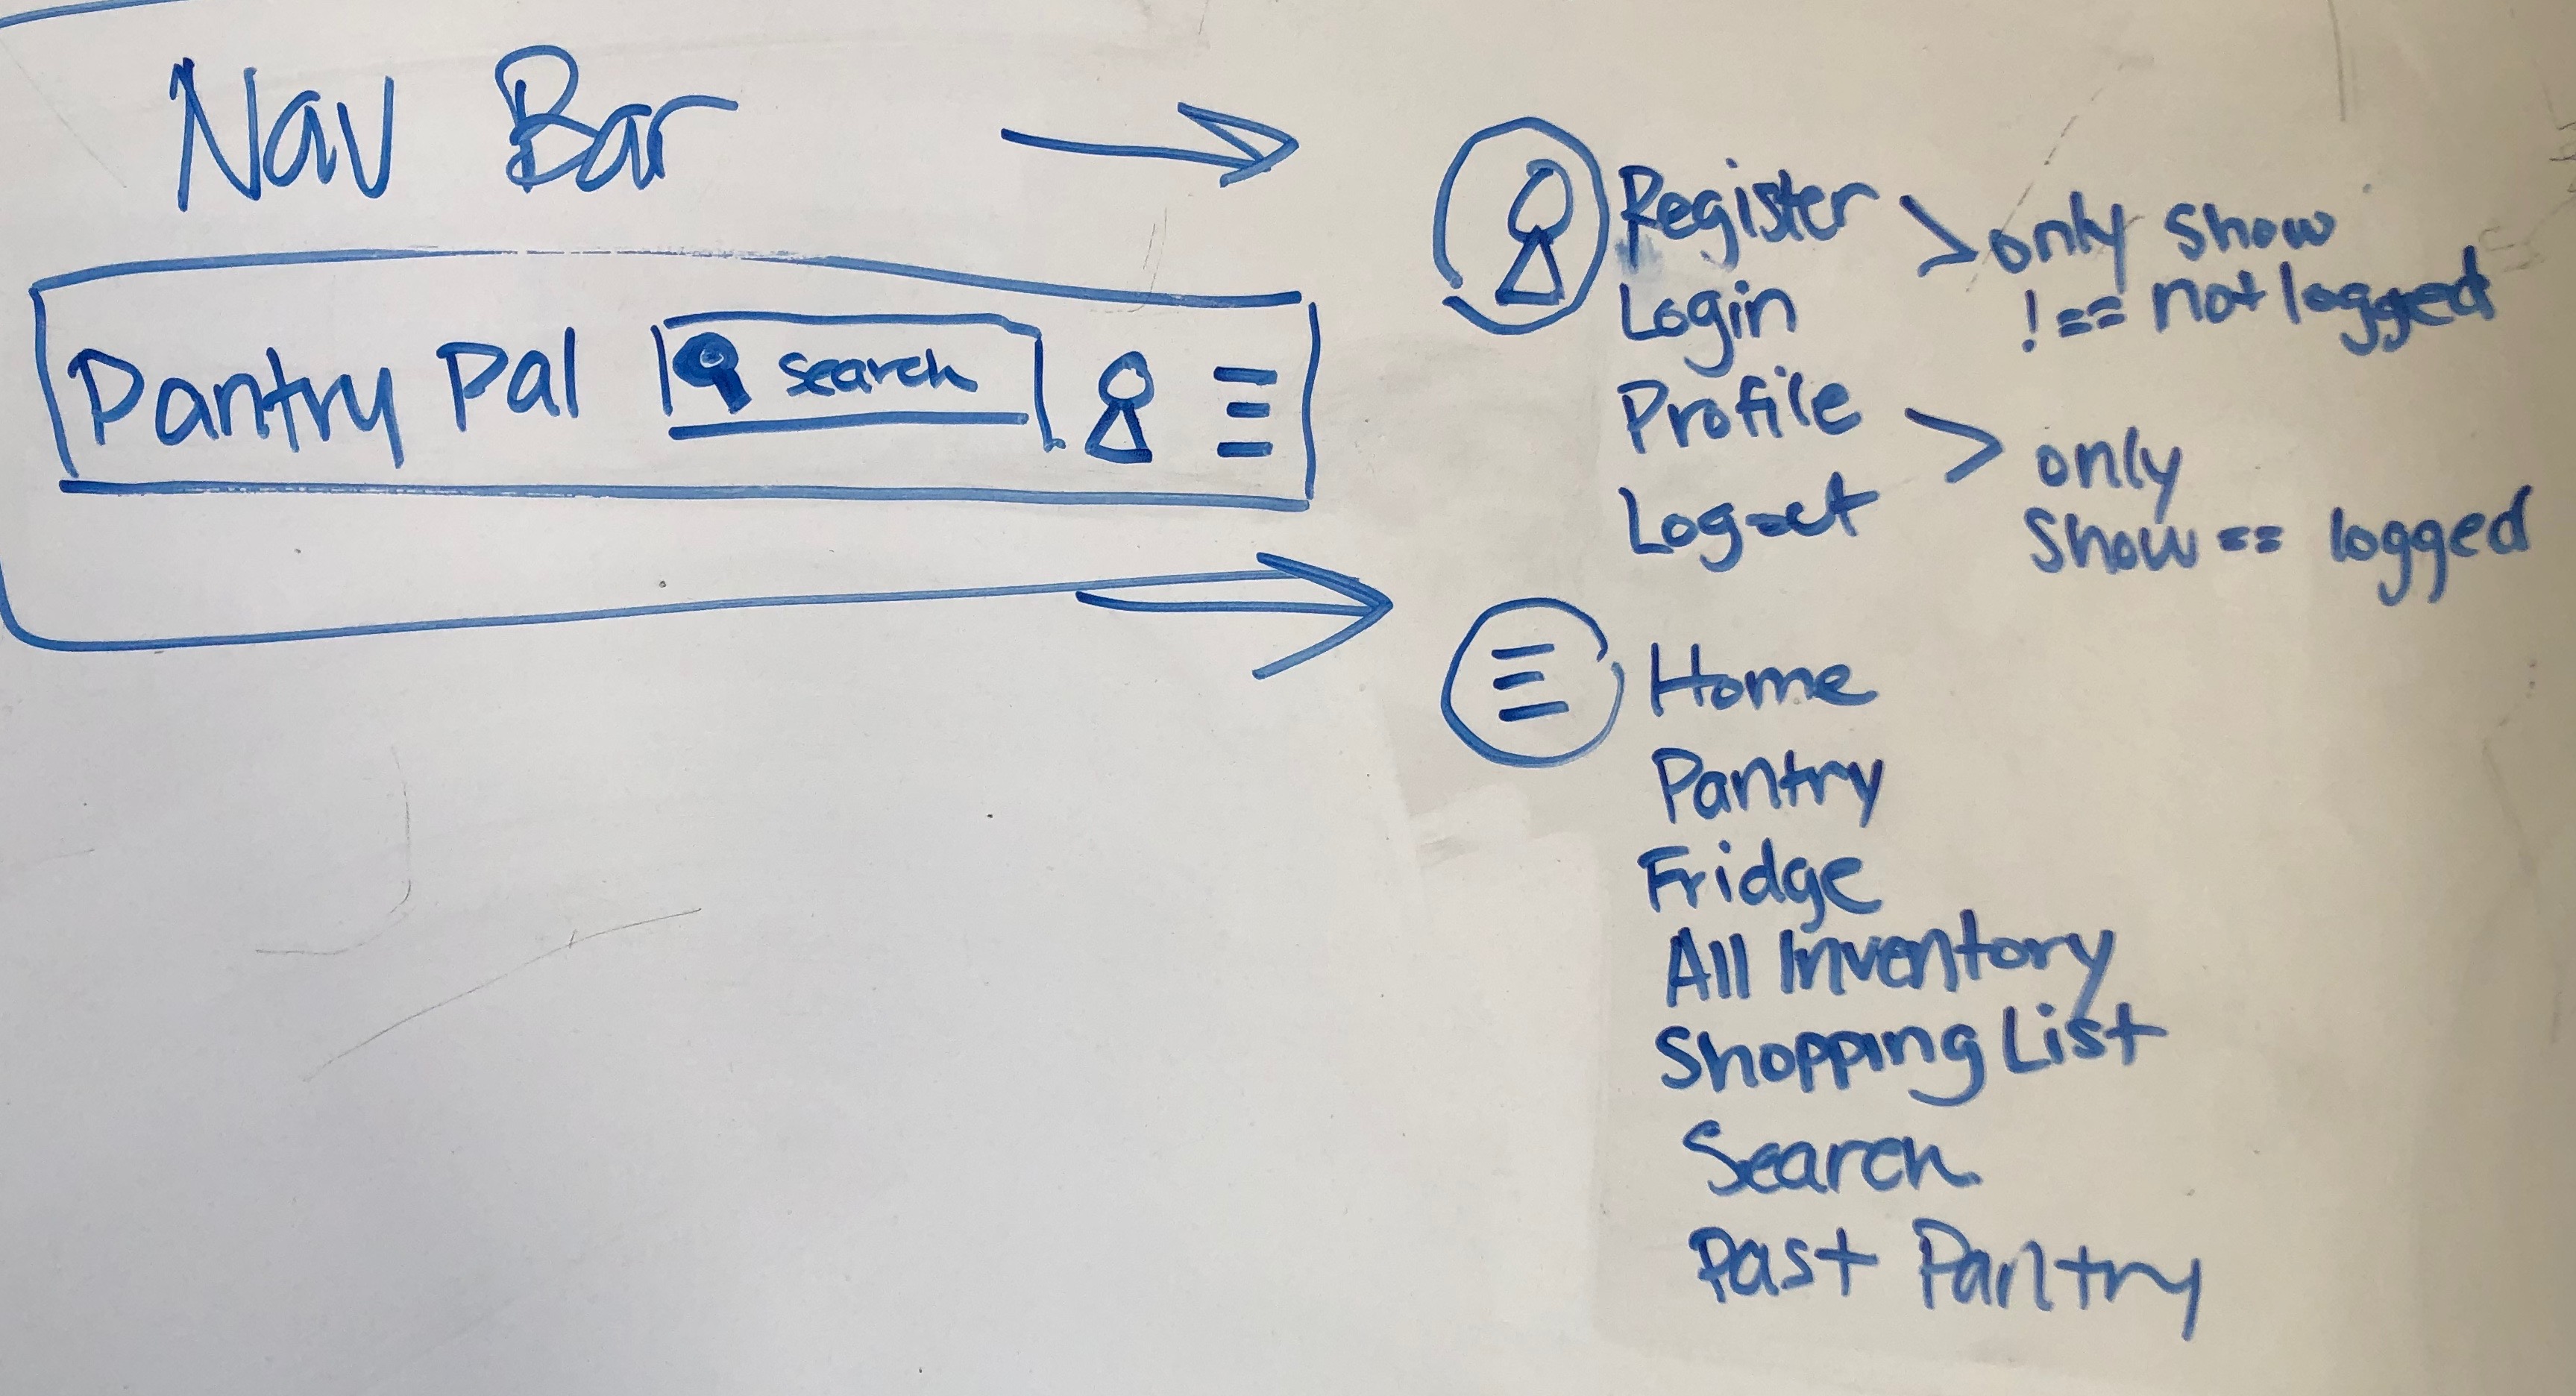 Nav Bar
Pantry Pal
search
Register
Login
Profile
Logout
only show
!== not logged
only
show == logged
Home
Pantry
Fridge
All Inventory
Shopping List
Search
Past Pantry